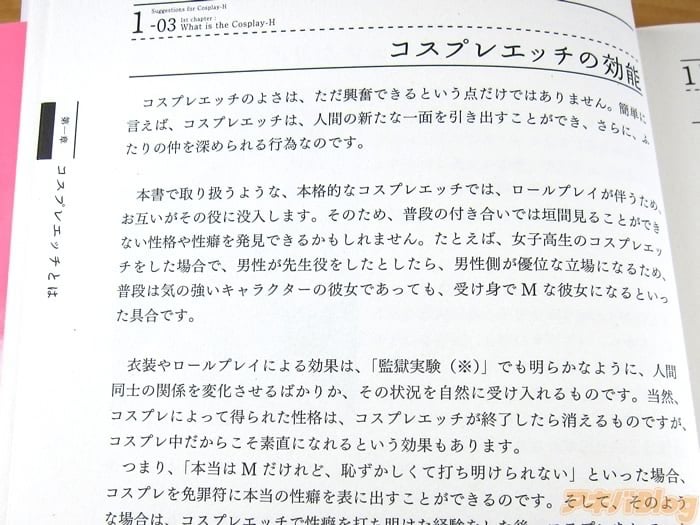 Suggestions for Cosplay-H
1-03
1st chapter :
What is the Cosplay-H
コスプレエッチの効能
コスプレエッチのよさは、ただ興奮できるという点だけではありません。簡単に
言えば、コスプレエッチは、人間の新たな一面を引き出すことができ、さらに、ふ
たりの仲を深められる行為なのです。
本書で取り扱うような、本格的なコスプレエッチでは、ロールプレイが伴うため、
お互いがその役に没入します。そのため、普段の付き合いでは垣間見ることができ
ない性格や性癖を発見できるかもしれません。たとえば、女子高生のコスプレエッ
チをした場合で、男性が先生役をしたとしたら、男性側が優位な立場になるため、
普段は気の強いキャラクターの彼女であっても、受け身でMな彼女になるといっ
た具合です。
衣装やロールプレイによる効果は、「監獄実験（※）」でも明らかなように、人間
同士の関係を変化させるばかりか、その状況を自然に受け入れるものです。当然、
コスプレによって得られた性格は、コスプレエッチが終了したら消えるものですが、
コスプレ中だからこそ素直になれるという効果もあります。
つまり、「本当はMだけれど、恥ずかしくて打ち明けられない」といった場合、
コスプレを免罪符に本当の性癖を表に出すことができるのです。そして、そのよう
な場合は、コスプレエッチで性癖を打ち明けた経験をした後、
第一章
コスプレエッチとは
1